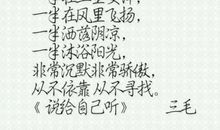 一半在风里飞扬,
一半洒落阴凉,
一半沐浴阳光,
非常沉默非常骄傲,
从不依靠从不寻找。
《说给自己听》 三毛